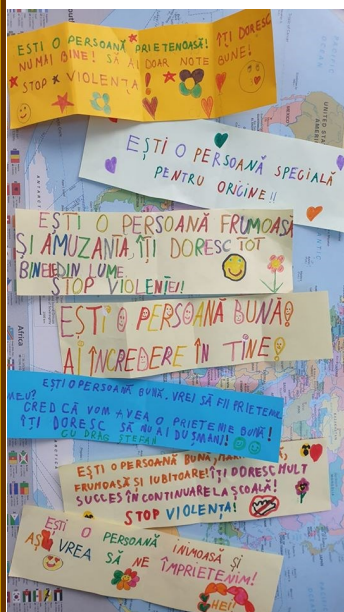 ESTI O PERSOANĂ PRIETENOASĂ! ÎȚI DORESC
NUMAI BINE! SĂ AI DOAR NOTE BUNE!
STOP VIOLENȚA!
EȘTI O PERSOANĂ SPECIALĂ
PENTRU ORICINE!!
EȘTI O PERSOANĂ FRUMOASĂ
ȘI AMUZANTĂ, ÎȚI DORESC TOT
BINELE DIN LUME.
STOP VIOLENȚEI!
EȘTI O PERSOANĂ BUNĂ!
AI ÎNCREDERE ÎN TINE!
EȘTI O PERSOANĂ BUNĂ, VREI SĂ FII PRIETENUL
MEU?
CRED CĂ VOM AVEA O PRIETENIE BUNĂ!
ÎȚI DORESC SĂ NU AI DUȘMANI!
CU DRAG ȘTEFAN
EȘTI O PERSOANĂ BUNĂ,
FRUMOASĂ ȘI IUBITOARE! ÎȚI DORESC MULT
SUCCES ÎN CONTINUARE LA ȘCOALĂ!
STOP VIOLENȚA!
EȘTI O PERSOANĂ INIMOASĂ ȘI
AȘ VREA SĂ NE ÎMPRIETENIM!
HEI!
Africa